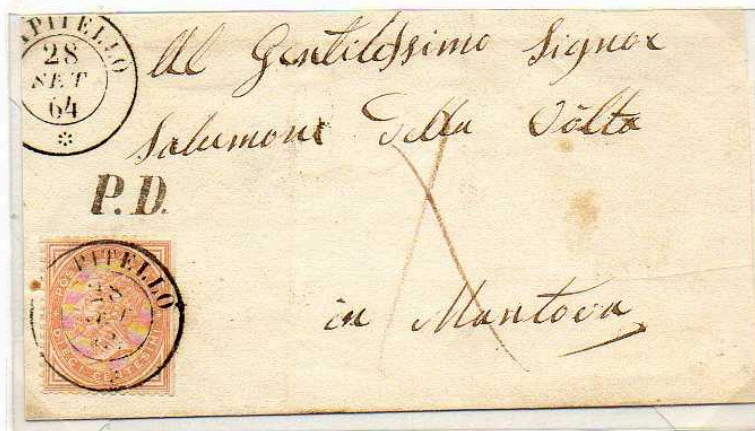 APITELLO
28
SET
64
Al Gentilissimo Signor
Salomone Della Volta
P.D.
PITELLO
DIECI CENTESIMI
in Mantova